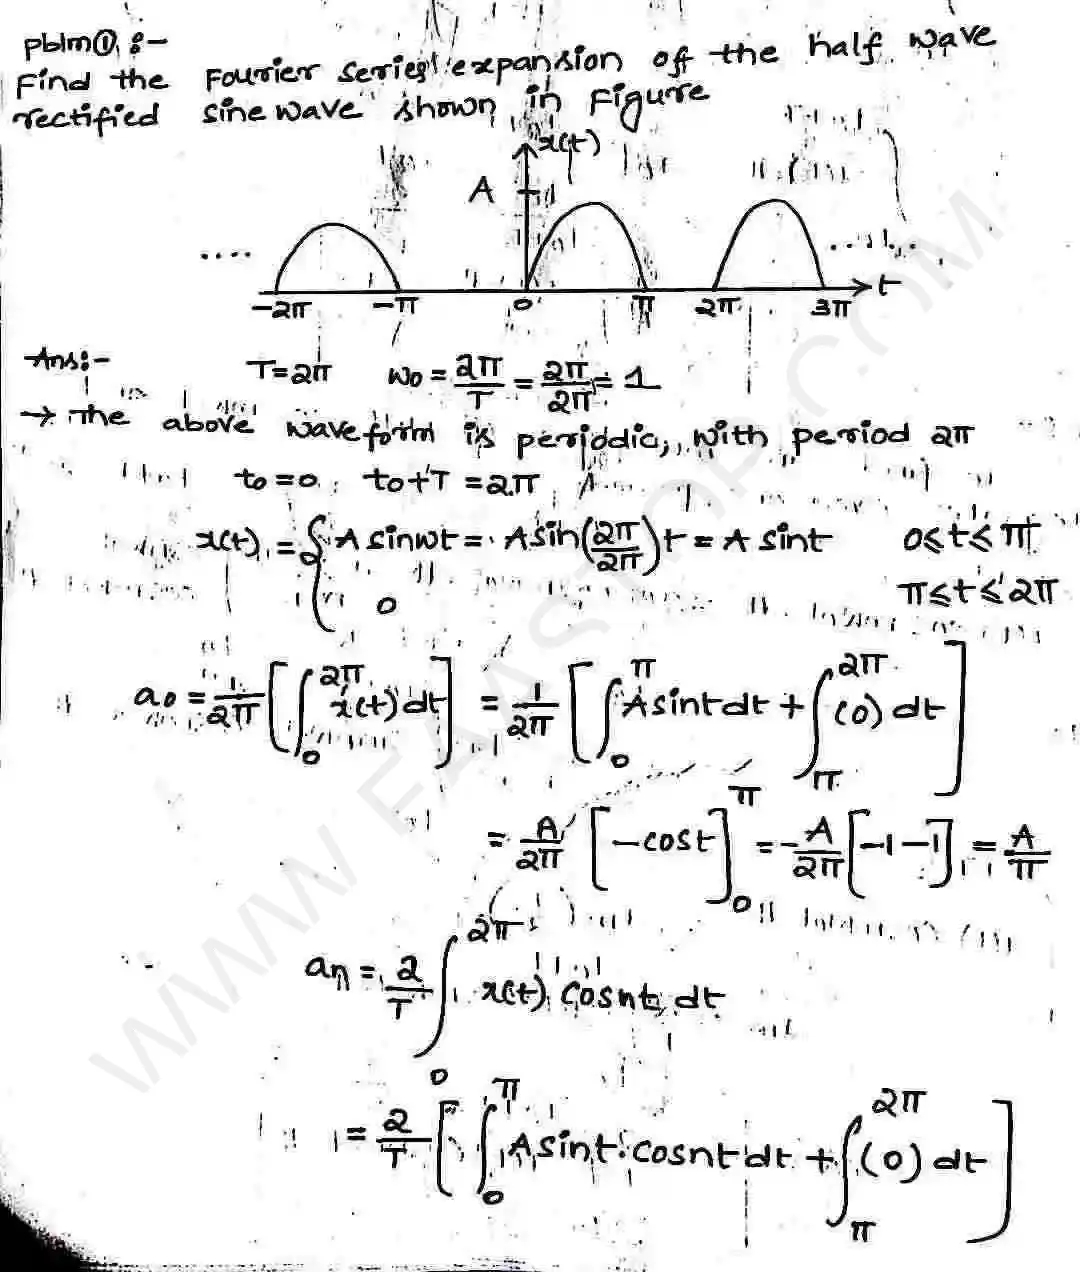 pblm① :-
Find the Fourier series expansion off the half wave
rectified sine wave shown in Figure
x(t)
A
.... ....
-2π -π 0 π 2π 3π t
Ans:-
T=2π ω0 = 2π/T = 2π/2π = 1
→ The above waveform is periodic, with period 2π
t0 = 0 t0+T = 2π
x(t) = { A sinωt = A sin(2π/2π)t = A sint 0≤t≤π
0 π≤t≤2π
a0 = 1/2π [∫_0^2π x(t) dt] = 1/2π [∫_0^π A sint dt + ∫_π^2π (0) dt]
= A/2π [-cost]_0^π = -A/2π [-1-1] = A/π
an = 2/T ∫_0^2π x(t) cosnt dt
= 2/T [∫_0^π A sint. cosnt dt + ∫_π^2π (0) dt]